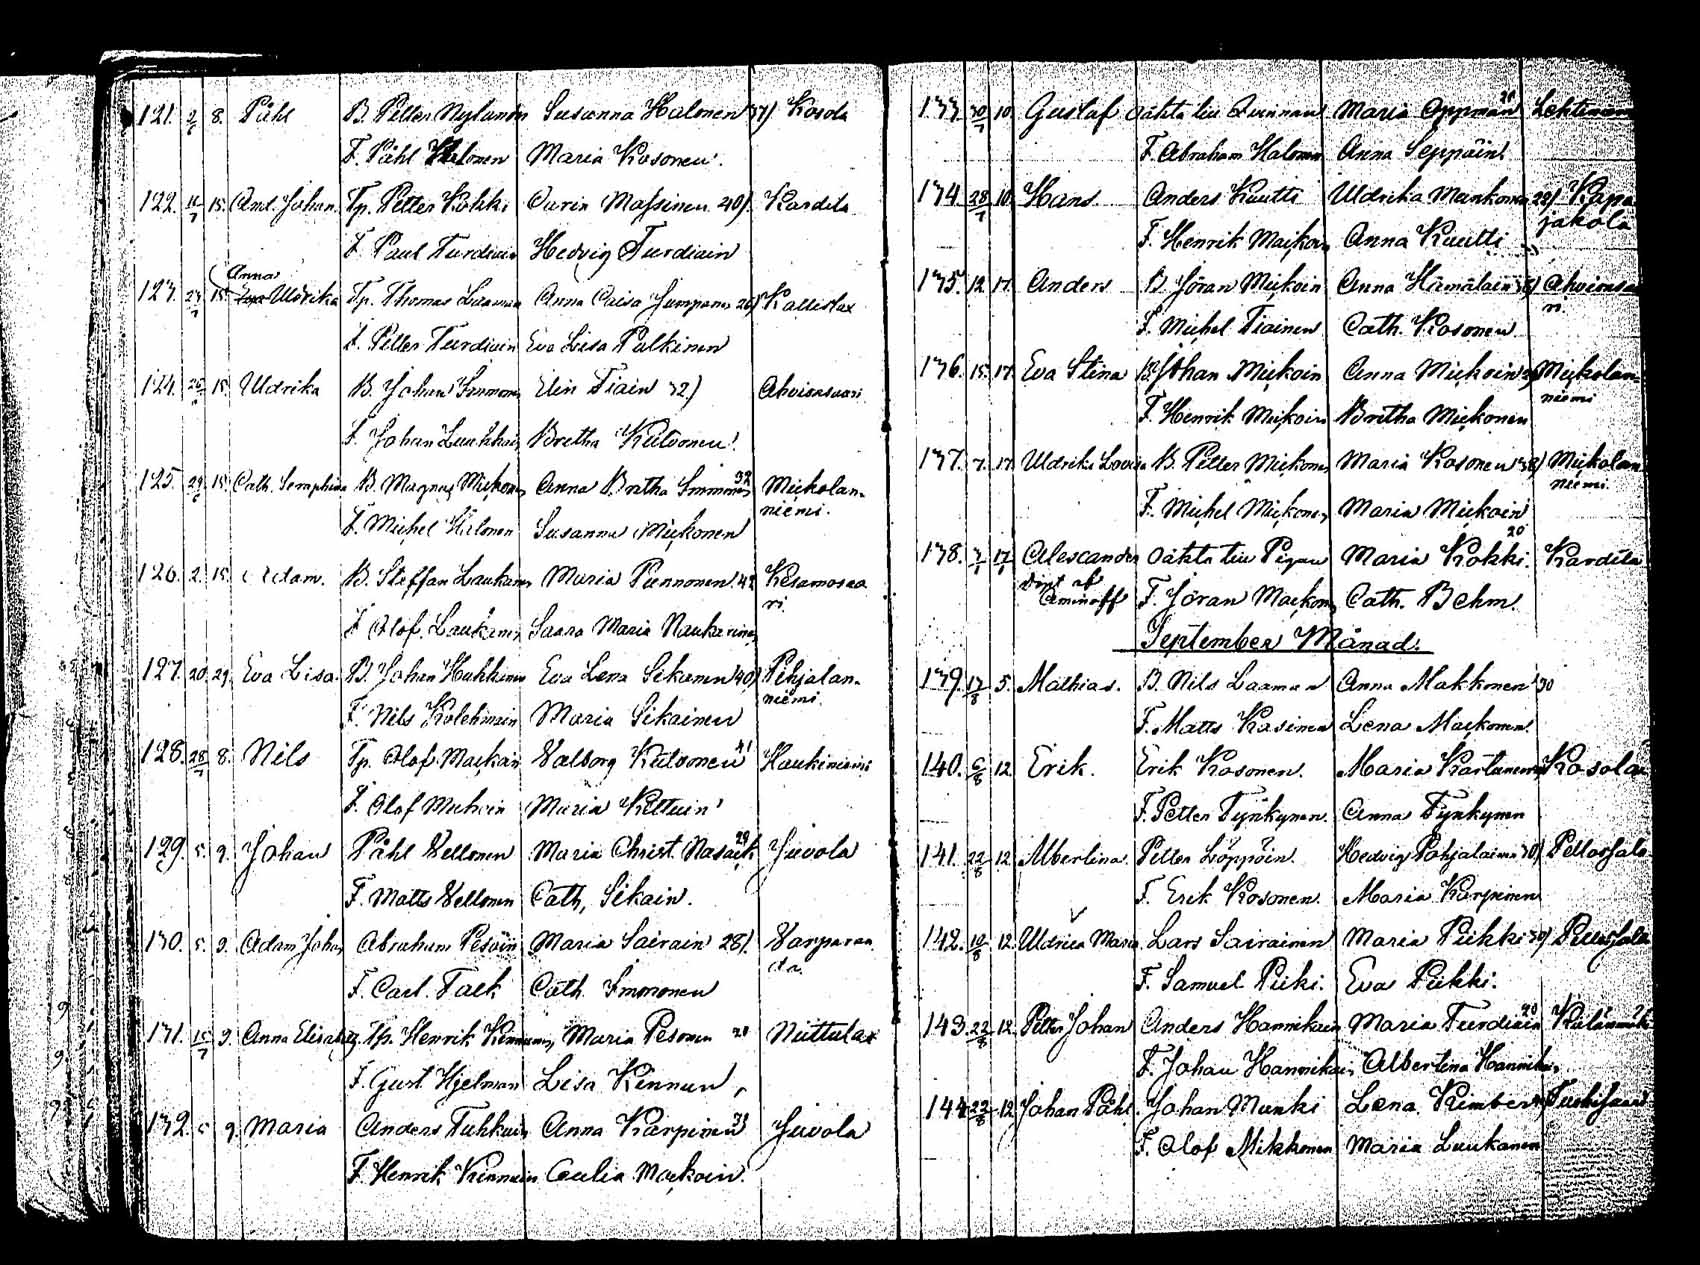 121. 2/6 8. Påhl B. Petter Nylander Susanna Halonen 37) Kosola
F. Påhl Halonen Maria Kosonen
122. 15. And. Johan Tp. Petter Kokki Carin Massinen 40) Kardila
F. Paul Turdiain Hedvig Turdiain
Anna
123. 15. Uldrika Tp. Thomas Laaman Anna Caisa Jumpanen 26) Kallislax
F. Petter Turdiain Eva Lisa Pulkinen
124. 15. Uldrika B. Johan Immonen Elin Tiain 32) Ahvionsaari
F. Johan Luukkain Bretha Kutvonen
125. 15. Cath. Seraphina B. Magnus Mickonen Anna Bretha Immonen 32 Mickolan-
niemi.
F. Michel Halonen Susanna Mickonen
126. 2. 15. Adam. B. Staffan Laukanen Maria Punnonen 42 Kesamosaa
ri.
F. Olof Laukanen Saara Maria Naukarinen
127. 20 29. Eva Lisa. B. Johan Huhkinen Eva Lena Sikanen 40) Pihjalan-
niemi.
F. Nils Kolehmain Maria Sikainen
128. 28/7 8. Nils Tp. Olof Mackain Valborg Kutvonen 41 Haukiniemi
F. Olof Muhoin Maria Kettuin
129. 5. 9. Johan Påhl Vellonen Maria Christ. Nasack 29 Juvola
F. Matts Vellonen Cath. Sikain.
130. 5. 9. Adam Johan Abraham Pesoin Maria Sairain 28). Varparan
da.
F. Carl. Talk Cath. Immonen
131. 15/7 9. Anna Elisabeth Tp. Henrik Kinnunen Maria Pesonen 28 Niittulax
F. Gust Hjelman Lisa Kinnun
132. 5 9. Maria Anders Tuhkain Anna Karpinen 33 Juvola
F. Henrik Kinnuin Cecilia Mackoin.
133. 30/7 10. Gustaf oäkta liu Quinnan Maria Oppman 20 Lehtiniemi
F. Abraham Halonen Anna Seppäin
134. 28/7 10. Hans. Anders Kuutti Uldrika Munkonen 22) Kapa
jakola
F. Henrik Mackoin Anna Kuutti
135. 12 17. Anders B. Jöran Mickoin Anna Hämäläin Ahvionsaa
ri.
F. Michel Tiainen Cath. Kosonen
136. 15. 17. Eva Stina B. Johan Mickoin Anna Mickoin Mickolan-
niemi
F. Henrik Mickoin Bretha Mickonen
137. 7. 17. Uldrika Lovisa B. Petter Mickonen Maria Kosonen 38) Mickolan
niemi.
F. Michel Mickonen Maria Mickoin
138. 17 Alexander oäkta liu Pigan Maria Kokki. 20 Kardila
döpt af
Aminoff F. Jöran Mackonen Cath. Behm.
September Månad.
139. 17/8 5. Mathias. B. Nils Laaman Anna Makkonen 30
F. Matts Kasinen Lena Mackonen.
140. 6/8 12. Erik. Erik Kosonen. Maria Kartunen Kosola
F. Petter Tynkynen. Anna Tynkynen
141. 22/8 12. Albertina. Petter Löppöin. Hedvig Pohjalainen 30) Pellossalo
F. Erik Kosonen. Maria Karpinen
142. 10/8 12. Uldrica Maria Lars Sairainen Maria Piikki Pellossalo
F. Samuel Piiki. Eva Piikki.
143. 22/8 12. Petter Johan Anders Hannikain Maria Turdiain 20 Kulanmäki
F. Johan Hannikain, Albertina Hannikain
144 22/8 12 Johan Påhl. Johan Munki Lena Kimber
F. Olof Mikkonen Maria Luukanen